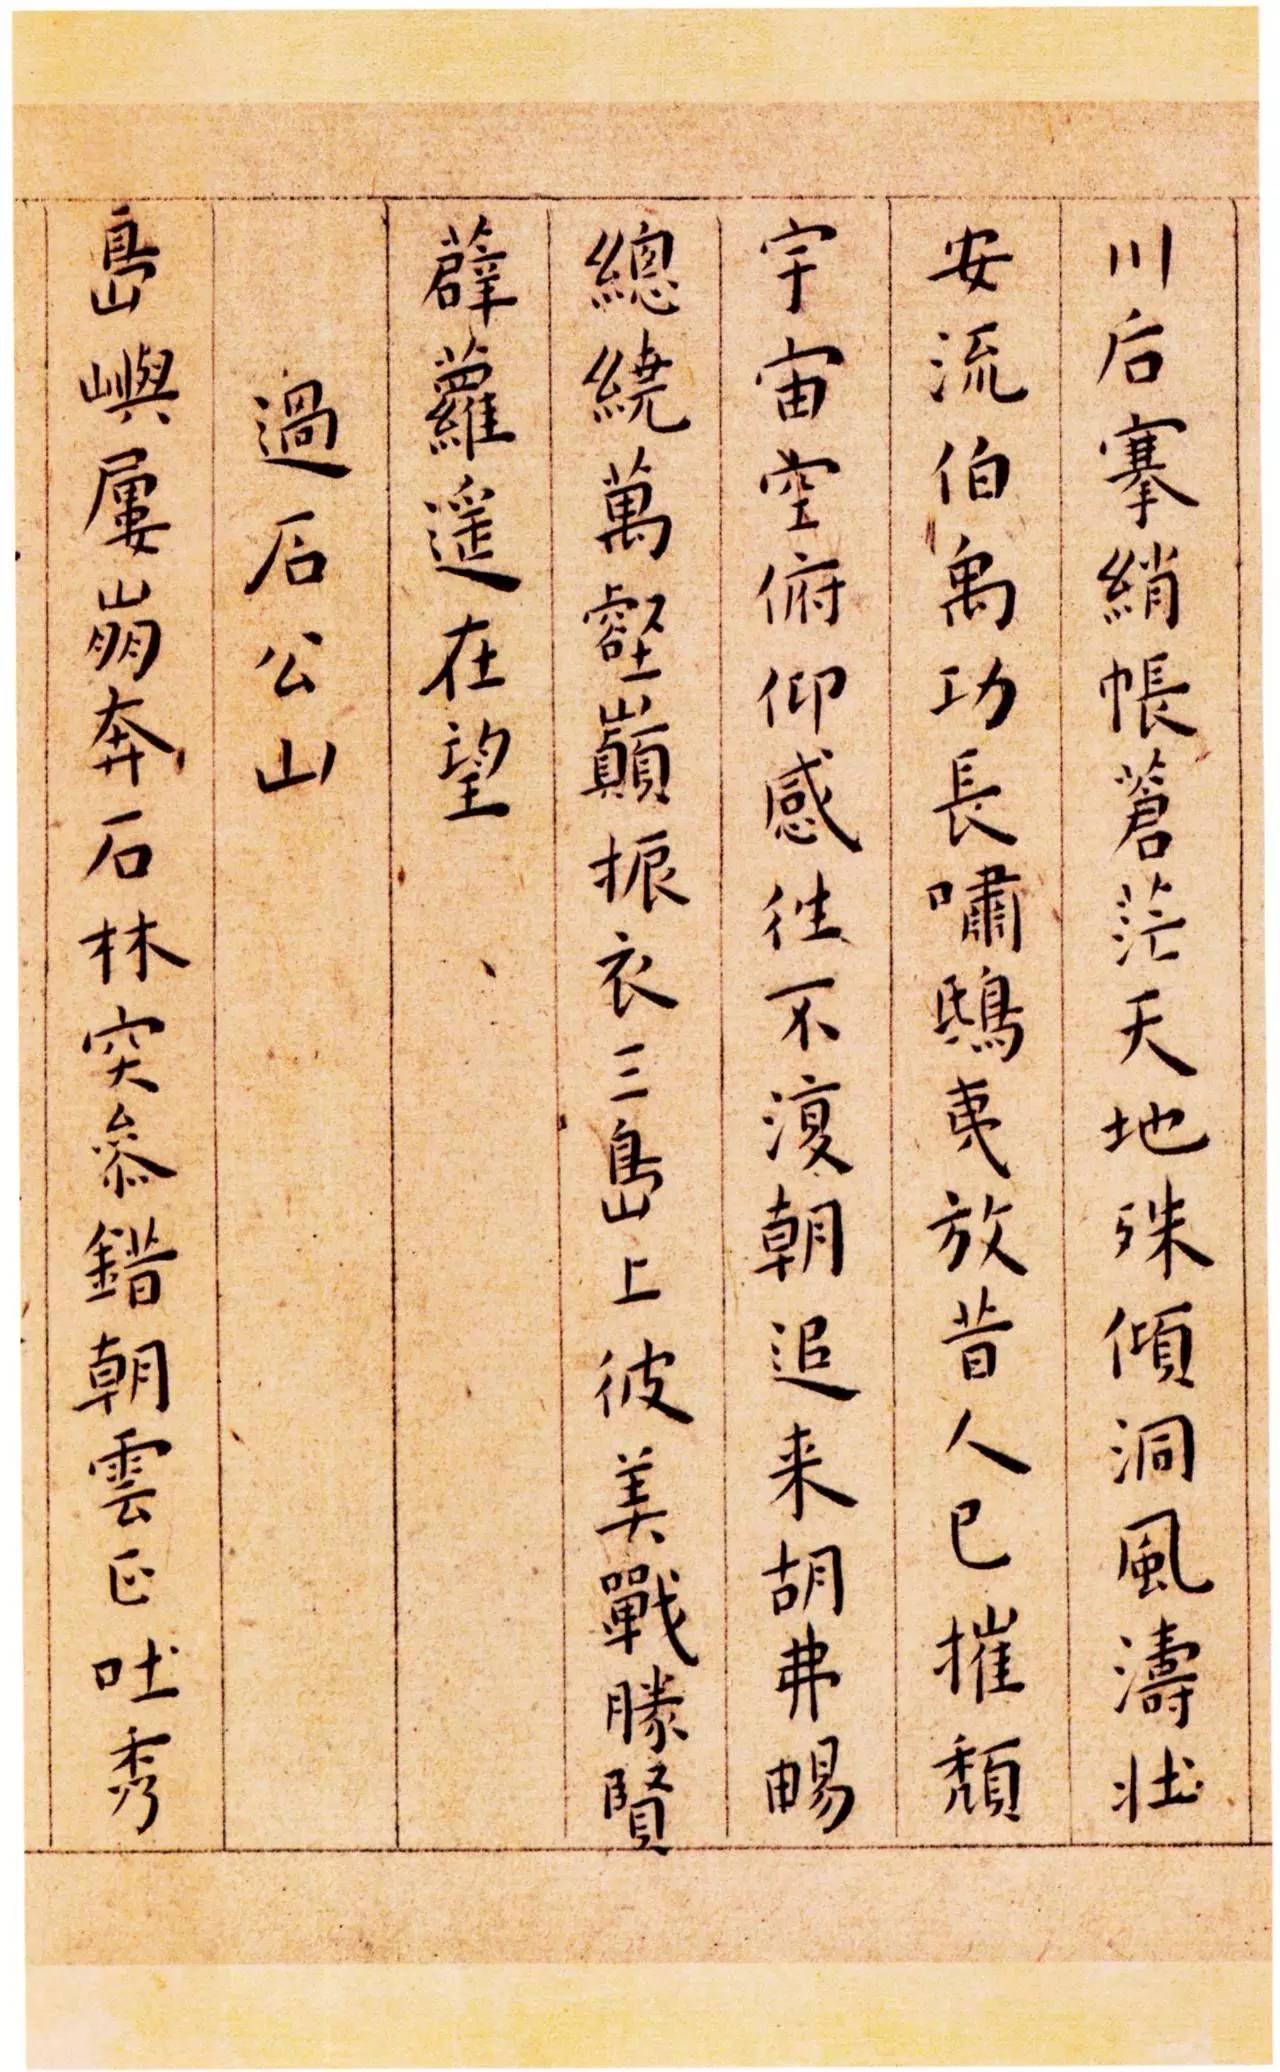 川后搴綃帳蒼茫天地殊傾洞風濤壯
安流伯禹功長嘯鴟夷放昔人已摧頹
宇宙空俯仰感往不復朝追来胡弗暢
總繞萬壑巔振衣三島上彼美戰勝賢
薜蘿遥在望
過石公山
島嶼屢崩奔石林突參錯朝雲正吐秀